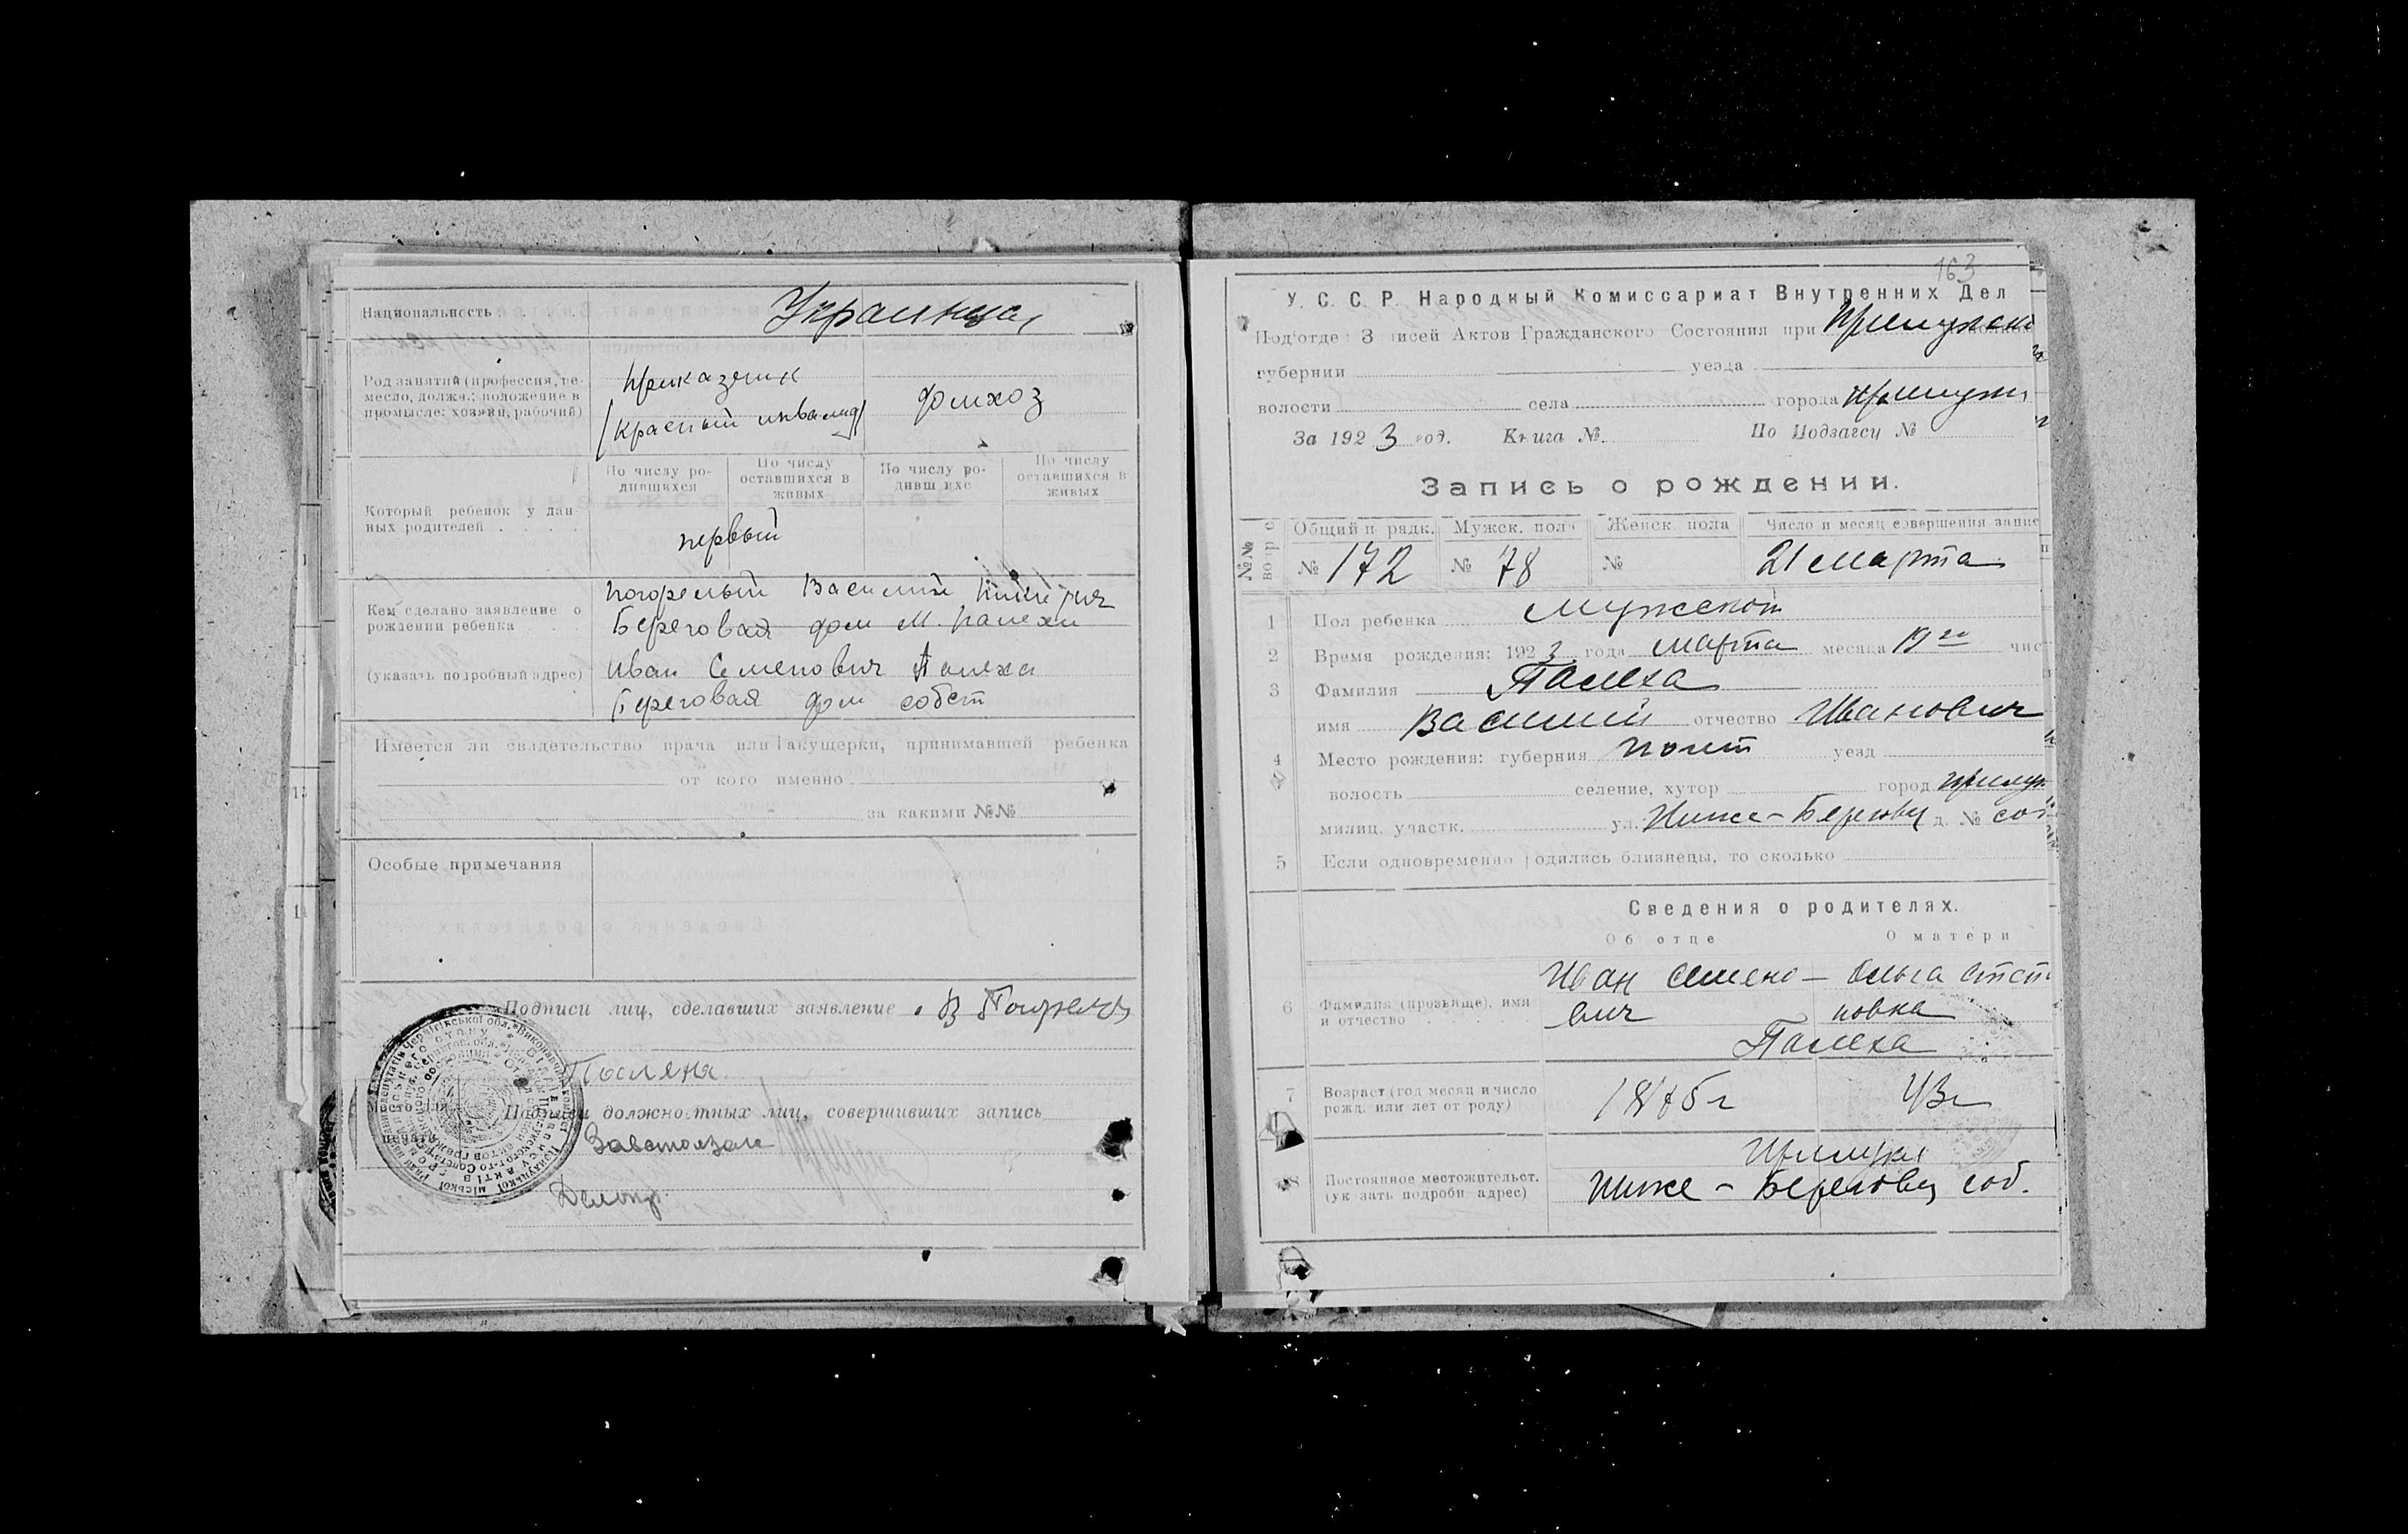 Национальность
Украинцы
Род занятий (профессия, ре-
месло, должн.; положение в
промысле: хозяин, рабочий)
приказчик
(красный инвалид)
домхоз
Который ребенок у дан-
ных родителей
По числу ро-
дившихся
По числу
оставшихся в
живых
По числу ро-
дивш ихс
По числу
оставшихся в
живых
первый
Кем сделано заявление о
рождении ребенка
(указать подробный адрес)
Погорелый Василий
Береговая дом М. Палехи
Иван Семенович Палеха
Береговая дом собст
Имеется ли свидетельство врача или акушерки, принимавшей ребенка
от кого именно
за какими №№
Особые примечания
Подписи лиц, сделавших заявление В
Подписи должностных лиц, совершивших запись
Делопр.
163
У. С. С. Р. Народный Комиссариат Внутренних Дел
Под'отдел З писей Актов Гражданского Состояния при
губернии уезда
волости села города Прилуки
За 1923 год. Книга № По Подзагсу №
Запись о рождении.
Общий п рядк. Мужск. пола Женск. пола Число и месяц совершения запис
№ 172 № 78 № 21 марта
1 Пол ребенка мужской
2 Время рождения: 1923 года марта месяца 19го чис
3 Фамилия Палеха
имя Василий отчество Иванович
4 Место рождения: губерния Полт уезд
волость селение, хутор город Прилук
милиц. участк. ул. Ниже-Берегова д. № соб
5 Если одновременно родились близнецы, то сколько
Сведения о родителях.
Об отце О матери
6 Фамилия (прозвище), имя
и отчество
Иван Семено-
вич
Ольга Степ
новна
Палеха
7 Возраст (год месяц и число
рожд. или лет от роду)
1875 г
43 г
8 Постоянное местожительст.
(ук зать подробн адрес)
Прилуки
Ниже-Берегова соб.